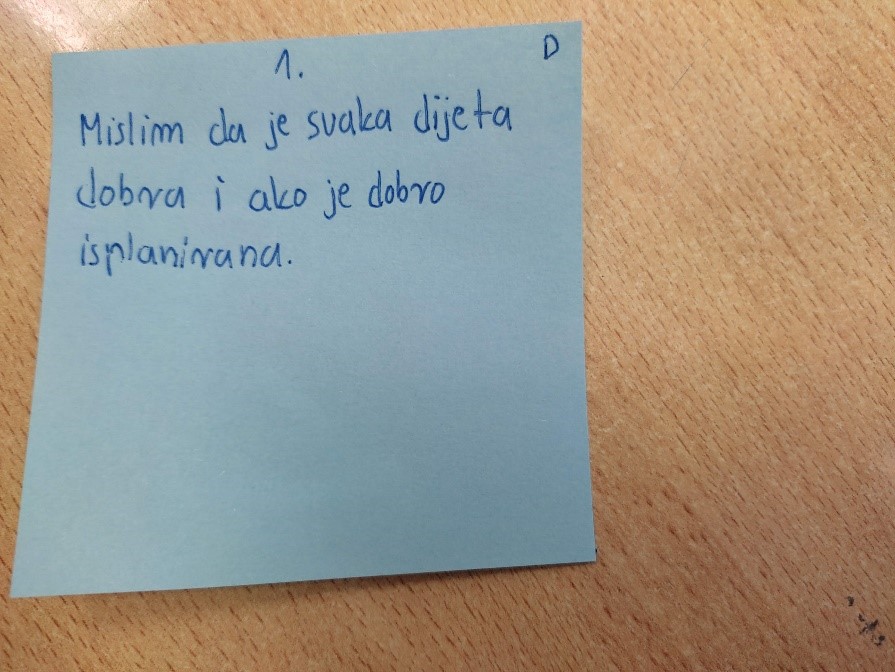 1. D
Mislim da je svaka dijeta
dobra i ako je dobro
isplanirana.